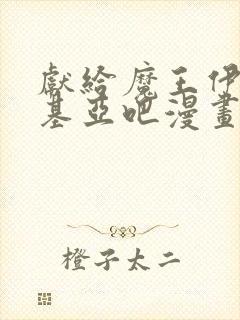 獻給魔王伊
基亞吧漫畫
橙子太二